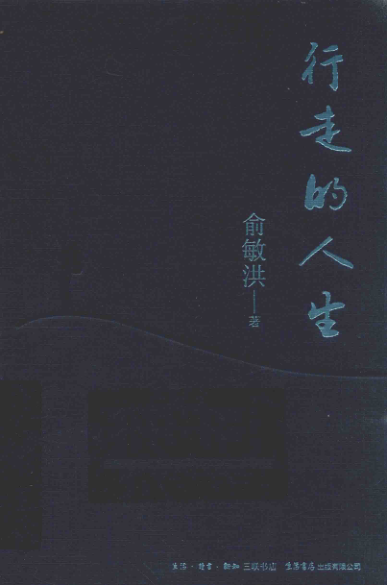 行走的人生
俞敏洪——著
生活·读书·新知 三联书店 生活书店出版有限公司